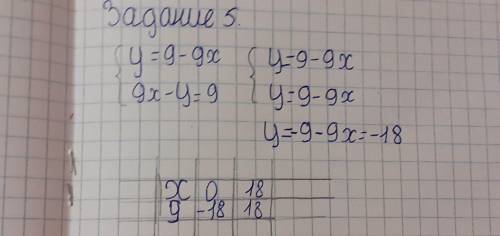 Задание 5.
{ y=9-9x { y=9-9x
9x-y=9 y=9-9x
y=-9-9x=-18
x 0 18
9 -18 18